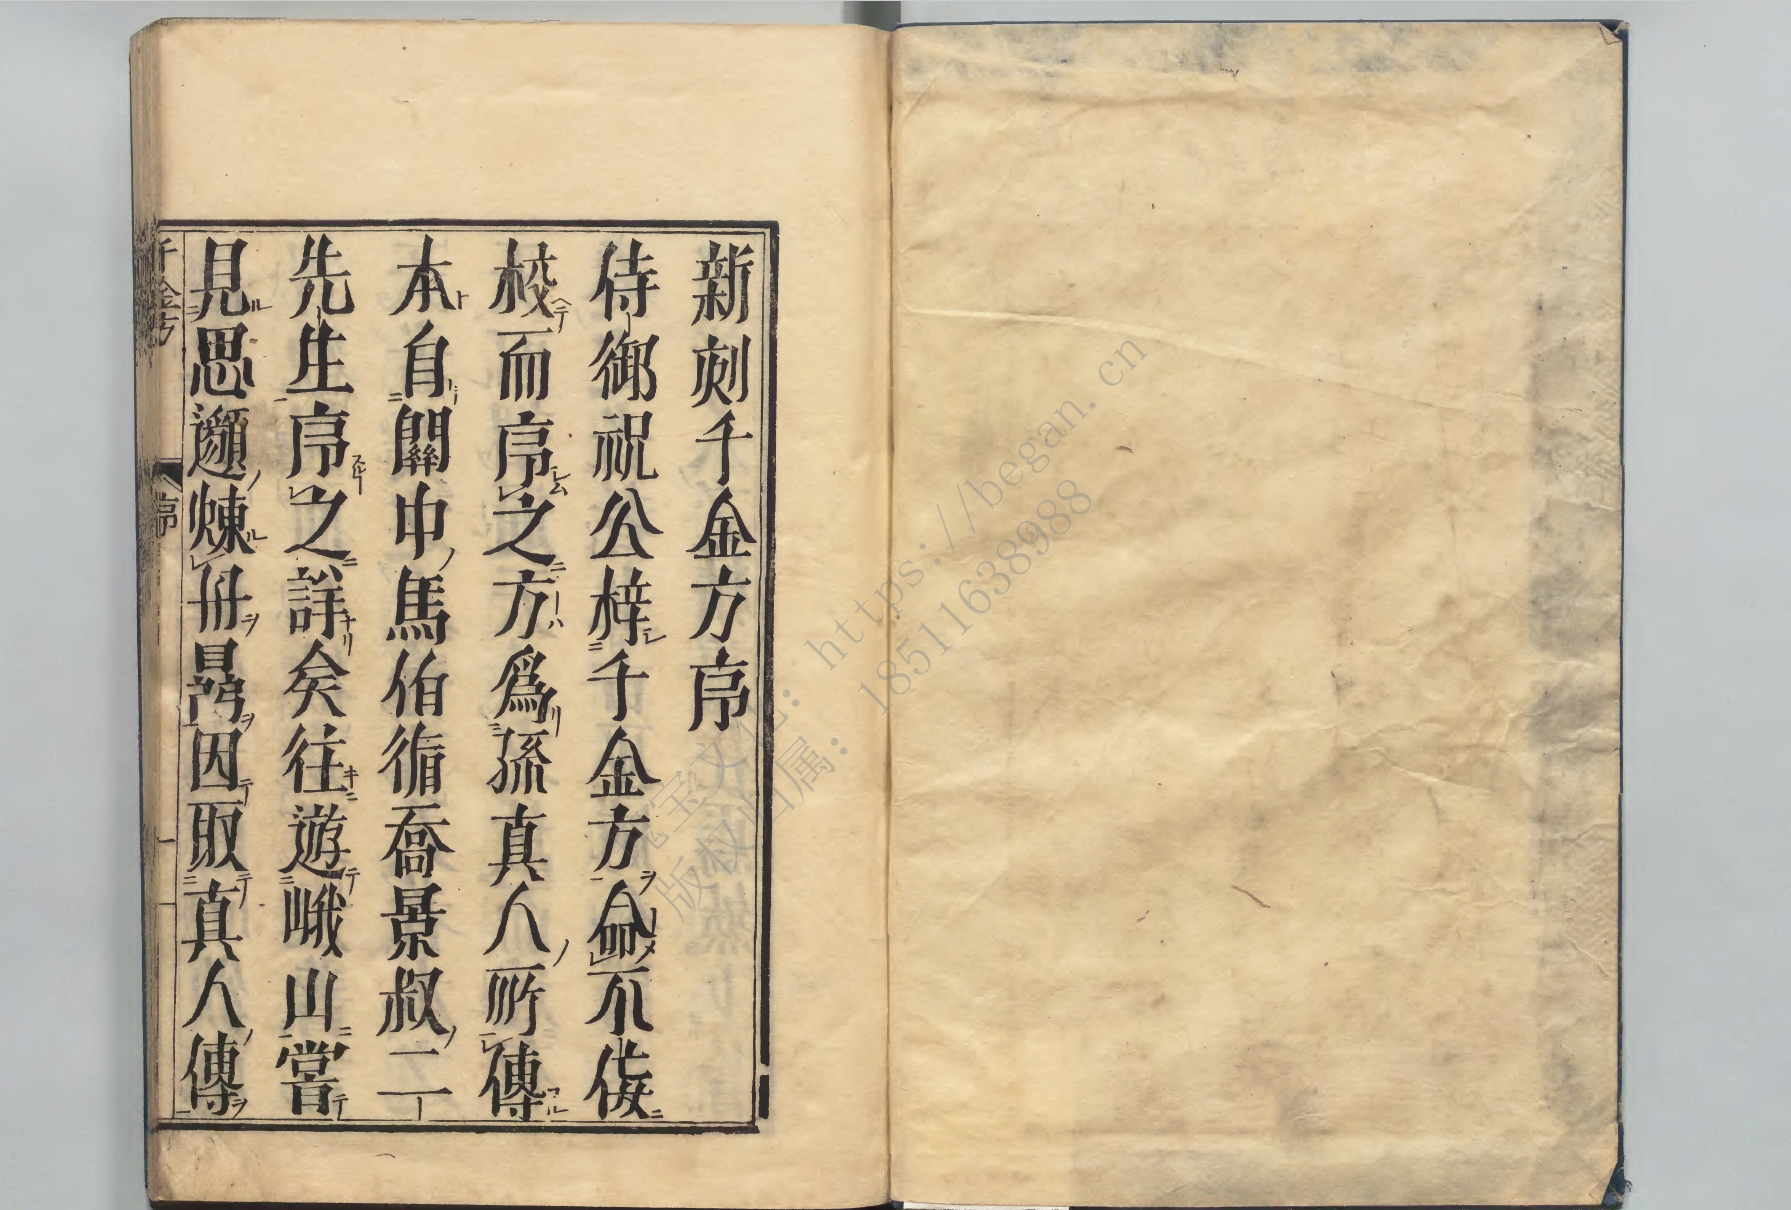 新刻千金方序
侍御祝公梓千金方命不佞
校而序之方爲孫真人所傳
本自關中馬伯循喬景叔二
先生序之詳矣往遊峨山嘗
見思邈煉丹因取真人傳
千金方
序
一
飞宝文化：https://began.cn
版权归属：18511638988